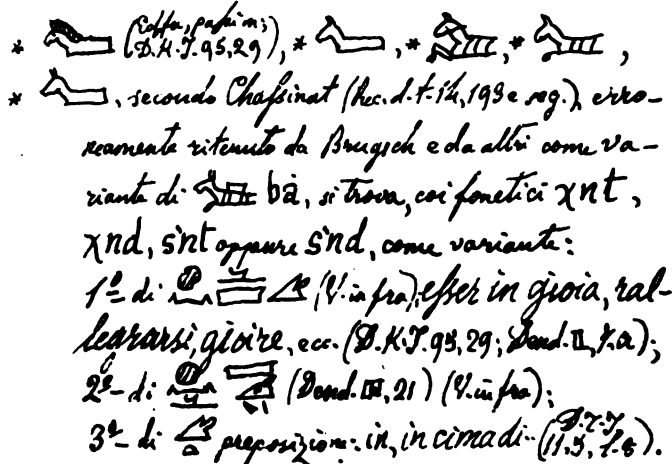 * (Edfu, passim; D.K.I. 95,29), * , * , * ,
* , secondo Chassinat (Rec. d. t. 14, 193 e seg.), erro-
neamente ritenuto da Brugsch e da altri come va-
riante di bȧ, si trova, coi fonetici χnt,
χnd, šnt oppure šnd, come variante:
1º- di (V. infra), esser in gioia, ral-
legrarsi, gioire, ecc. (D.K.I. 95, 29; Dend. II, 7.a);
2º- di (Dend. III, 21) (V. infra);
3º- di preposizione: in, in cima di.. ( 11, 5, 7-8).